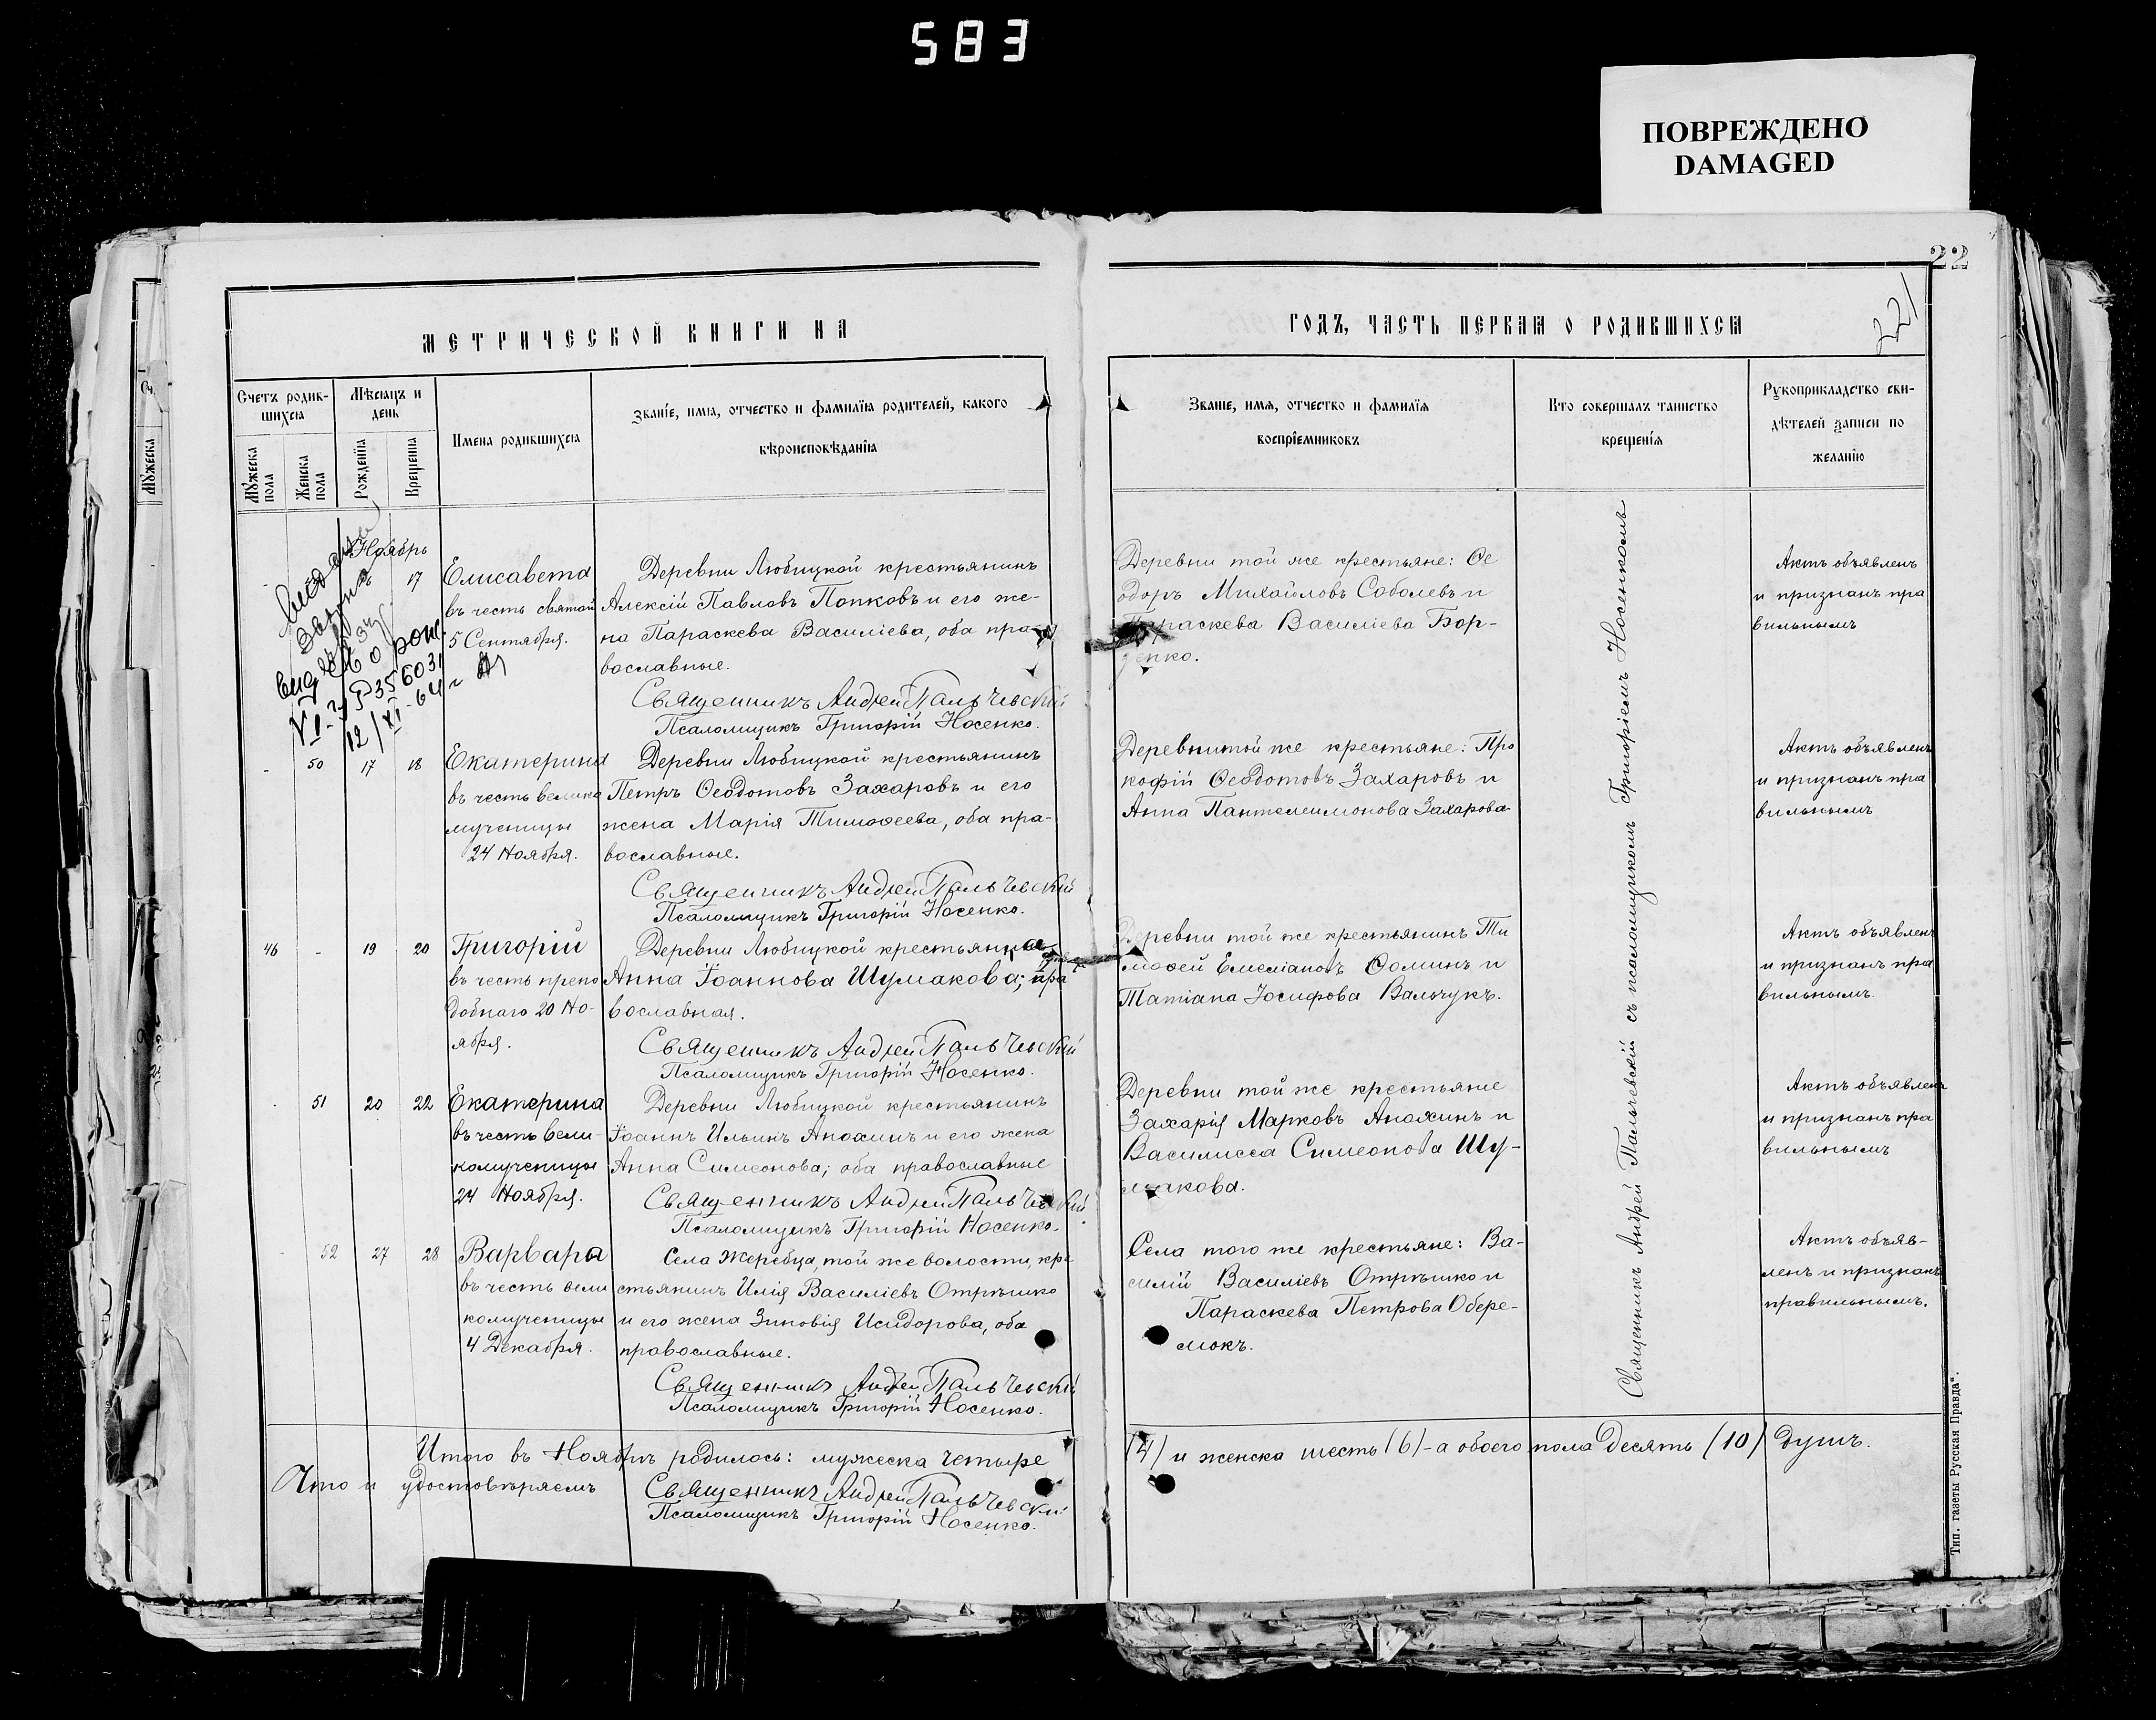 583
ПОВРЕЖДЕНО
DAMAGED
22
221
МЕТРИЧЕСКОЙ КНИГИ НА
ГОДЪ, ЧАСТЬ ПЕРВАЯ О РОДИВШИХСЯ
Счетъ родив-
шихся
Мѣсяцъ и
день
Мужеска
пола
Женска
пола
Рожденія
Крещенія
Имена родившихся
Званіе, имя, отчество и фамилія родителей, какого
вѣроисповѣданія
Званіе, имя, отчество и фамилія
воспріемниковъ
Кто совершалъ таинство
крещенія
Рукоприкладство сви-
дѣтелей записи по
желанію
Мужеска
Ноябрь
17
Елисавета
въ честь святой
5 Сентября.
о рож.
356031
12/XI-64 г
Деревни Любицкой крестьянинъ
Алексій Павловъ Попковъ и его же-
на Параскева Василіева, оба пра-
вославные.
Священникъ Андрей Пальчевскій
Псаломщикъ Григорій Носенко.
Деревни той же крестьяне: Ѳе
одоръ Михайловъ Соболевъ и
Параскева Василіева Бор-
Актъ объявленъ
и признанъ пра
вильнымъ
- 50 17 18
Екатерина
въ честь велико
мученицы
24 Ноября.
Деревни Любицкой крестьянинъ
Петръ Ѳеодотовъ Захаровъ и его
жена Марія Тимоѳеева, оба пра-
вославные.
Священникъ Андрей Пальчевскій
Псаломщикъ Григорій Носенко.
Деревни той же крестьяне: Про
кофій Ѳеодотовъ Захаровъ и
Анна Пантелеимонова Захарова
Актъ объявленъ
и признанъ пра
вильнымъ
46 - 19 20
Григорій
въ честь препо
добнаго 20 Но-
ября.
Деревни Любицкой крестьянка
Анна Іоаннова Шумакова; пра
вославная.
Священникъ Андрей Пальчевскій
Псаломщикъ Григорій Носенко.
Деревни той же крестьянинъ Ти
моѳей Емеліановъ Ѳоминъ и
Татіана Іосифова Вальчукъ.
Актъ объявленъ
и признанъ пра
вильнымъ.
51 20 22
Екатерина
въ честь вели-
комученицы
24 Ноября.
Деревни Любицкой крестьянинъ
Іоаннъ Ильинъ Анохинъ и его жена
Анна Симеонова; оба православные
Священникъ Андрей Пальчевскій
Псаломщикъ Григорій Носенко.
Деревни той же крестьяне
Захарія Марковъ Анохинъ и
Василисса Симеонова Шу-
макова.
Актъ объявленъ
и признанъ пра
вильнымъ
52 27 28
Варвара
въ честь вели
комученицы
4 Декабря.
Села Жеребца, той же волости, кре
стьянинъ Илія Василіевъ Отрѣшко
и его жена Зиновія Исидорова, оба
православные.
Священникъ Андрей Пальчевскій
Псаломщикъ Григорій Носенко.
Села того же крестьяне: Ва-
силій Василіевъ Отрѣшко и
Параскева Петрова Обере-
мокъ.
Актъ объяв-
ленъ и признанъ
правильнымъ.
Священникъ Андрей Пальчевскій съ псаломщикомъ Григоріемъ Носенкомъ
Итого въ Ноябрѣ родилось: мужеска четыре (4) и женска шесть (6) - а обоего пола десять (10) душъ.
Что и удостовѣряемъ
Священникъ Андрей Пальчевскій
Псаломщикъ Григорій Носенко.
Тип. газеты „Русская Правда".